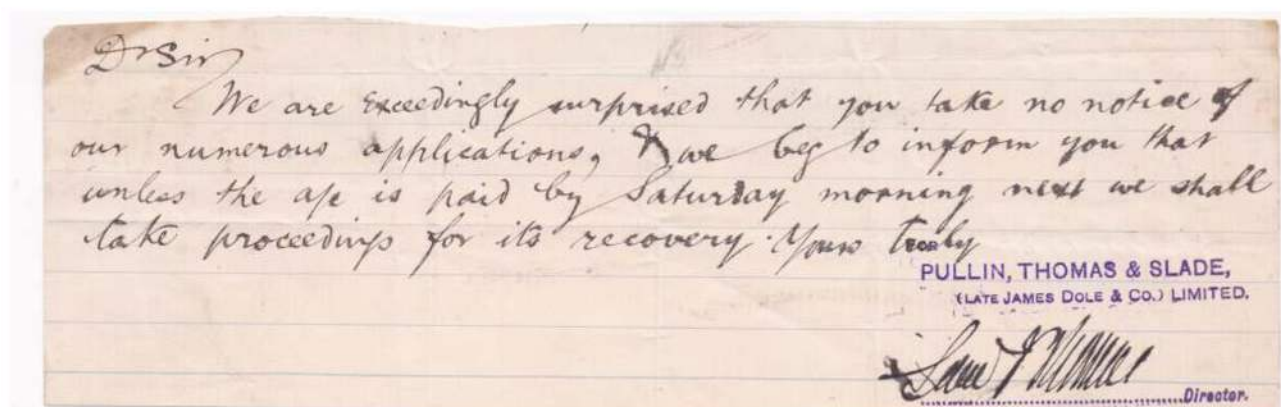 Dr Sir
We are exceedingly surprised that you take no notice of
our numerous applications, & we beg to inform you that
unless the a/c is paid by Saturday morning next we shall
take proceedings for its recovery. Yours truly
FOR
PULLIN, THOMAS & SLADE,
(LATE JAMES DOLE & CO.) LIMITED.
Director.